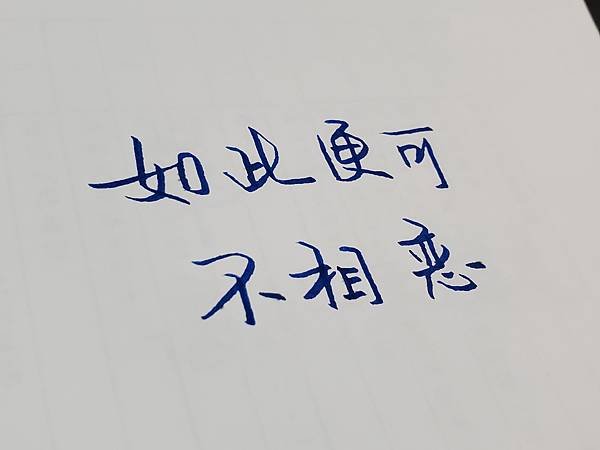 如此便可
不相恋